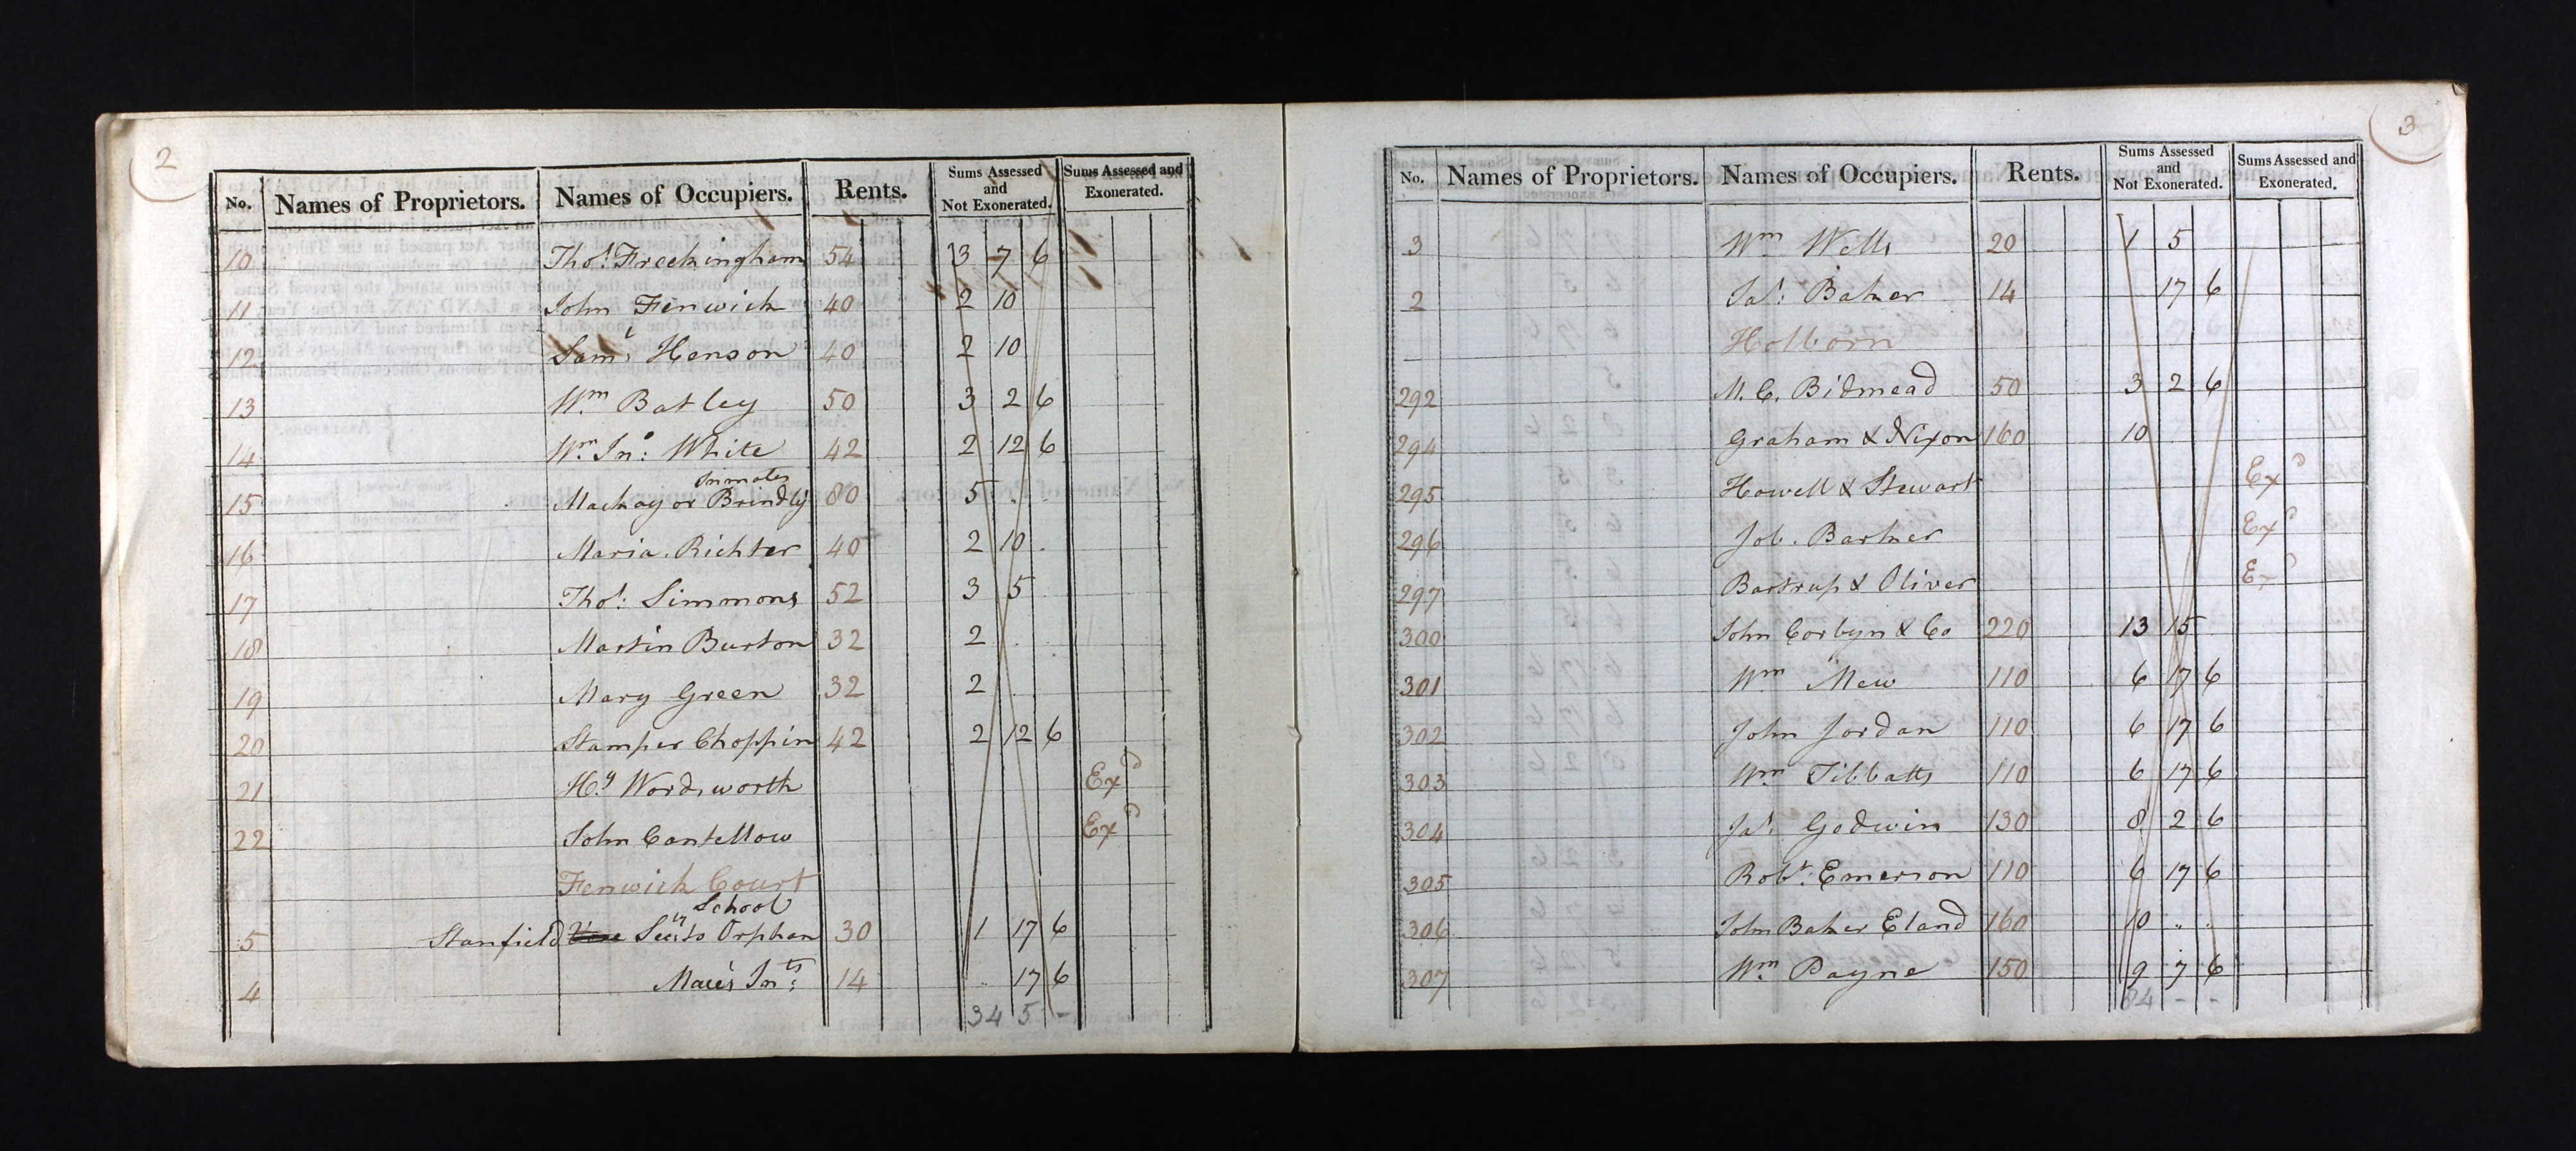 2
No. Names of Proprietors. Names of Occupiers. Rents. Sums Assessed and Not Exonerated. Sums Assessed and Exonerated.
10 Thos. Freckingham 54 3 7 6
11 John Fenwick 40 2 10
12 Saml. Henson 40 2 10
13 Wm Batley 50 3 2 6
14 Wm. Jno: White 42 2 12 6
Inmates
15 Mackay or Brindly 80 5 . .
16 Maria Richter 40 2 10 .
17 Thos: Simmons 52 3 5
18 Martin Burton 32 2 . .
19 Mary Green 32 2 . .
20 Stamper Choppin 42 2 12 6
21 Hy. Wordsworth Exd
22 John Cantellow Exd
Fenwick Court
School
5 Stanfield Orphan 30 1 17 6
4 Jnts: 14 .. 17 6
34 5 -
3
No. Names of Proprietors. Names of Occupiers. Rents. Sums Assessed and Not Exonerated. Sums Assessed and Exonerated.
3 Wm Wells 20 1 5
2 Jas: Baker 14 17 6
Holborn
292 M. C. Bidmead 50 3 2 6
294 Graham & Nixon 160 10 . .
295 Howell & Stewart Exd
296 Job. Barker Exd
297 Bartrup & Oliver Exd
300 John Corbyn & Co 220 13 15
301 Wm Mew 110 6 17 6
302 John Jordan 110 6 17 6
303 Wm Tibbatts 110 6 17 6
304 Jas. Godwin 130 8 2 6
305 Robt: Emerson 110 6 17 6
306 John Baker Eland 160 10 .. .
307 Wm. Payne 150 9 7 6
84 - -